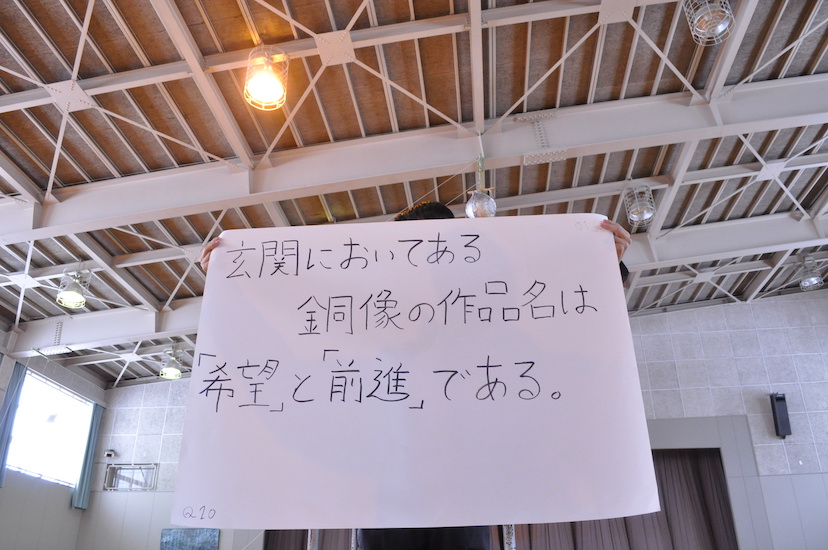 玄関においてある
銅像の作品名は
「希望」と「前進」である。
Q20